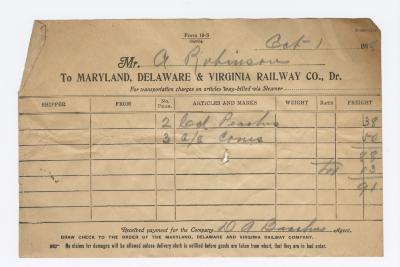 Form 19-5
Oct 1
Mr. A Robinson
To MARYLAND, DELAWARE & VIRGINIA RAILWAY CO., Dr.
For transportation charges on articles way-billed via Steamer
SHIPPER FROM No. PKGS. ARTICLES AND MARKS WEIGHT RATE FREIGHT
2 Peaches 38
3 50
88
03
91
Received payment for the Company Agent.
DRAW CHECK TO THE ORDER OF THE MARYLAND, DELAWARE AND VIRGINIA RAILWAY COMPANY.
No claims for damages will be allowed unless delivery clerk is notified before goods are taken from wharf, that they are in bad order.